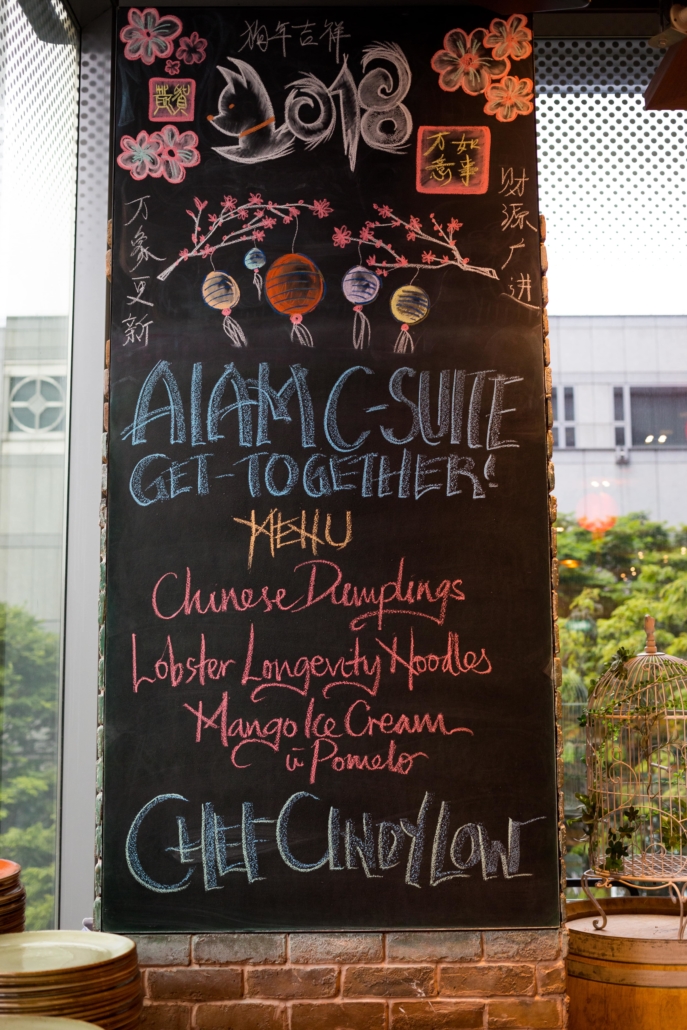 狗年吉祥
2018
恭贺
万事如意
财源广进
万象更新
AIAM C-SUITE
GET-TOGETHER!
MENU
Chinese Dumplings
Lobster Longevity Noodles
Mango Ice Cream
ū Pomelo
CHEF CINDY LOW